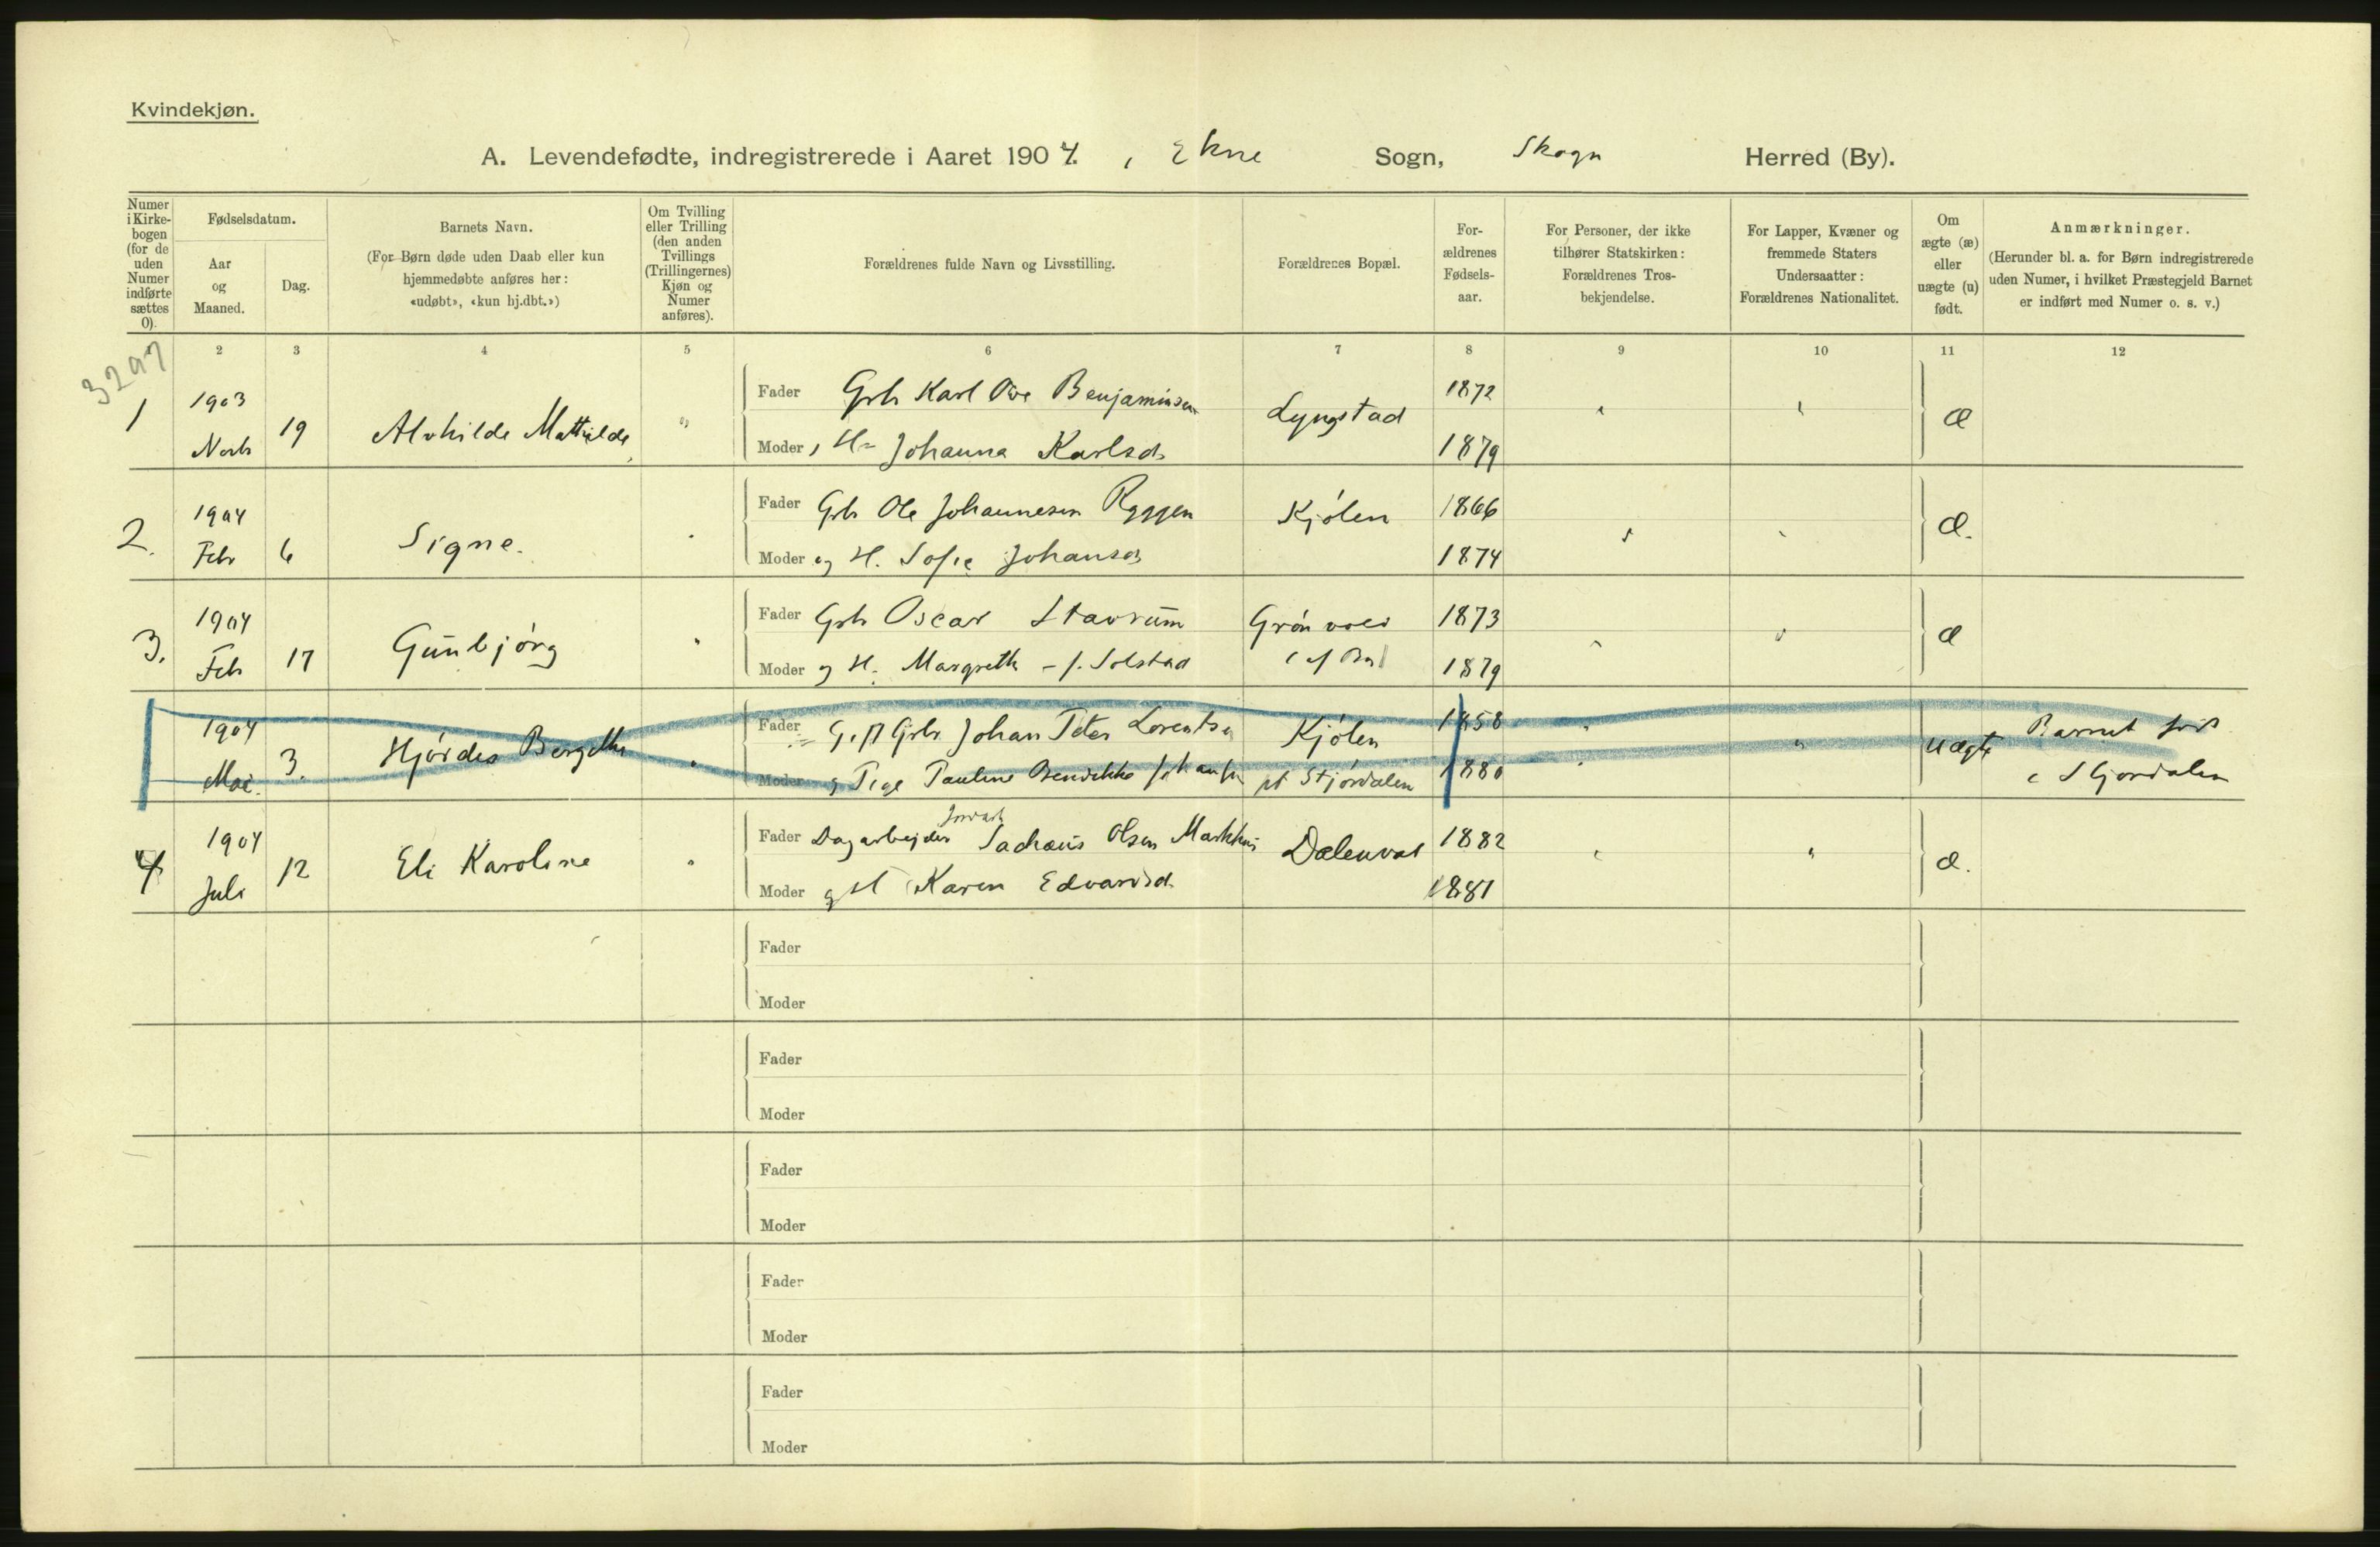 Kvindekjøn.
A. Levendefødte, indregistrerede i Aaret 1904. , Ekne Sogn, Skogn Herred (By).
Numer i Kirkebogen (for de uden Numer indførte sættes 0).
Fødselsdatum.
Aar og Maaned.
Dag.
Barnets Navn.
(For Børn døde uden Daab eller kun hjemmedøbte anføres her: «udøbt», «kun hj.dbt.»)
Om Tvilling eller Trilling (den anden Tvillings (Trillingernes) Kjøn og Numer anføres).
Forældrenes fulde Navn og Livsstilling.
Forældrenes Bopæl.
Forældrenes Fødselsaar.
For Personer, der ikke tilhører Statskirken: Forældrenes Trosbekjendelse.
For Lapper, Kvæner og fremmede Staters Undersaatter: Forældrenes Nationalitet.
Om ægte (æ) eller uægte (u) født.
Anmærkninger.
(Herunder bl. a. for Børn indregistrerede uden Numer, i hvilket Præstegjeld Barnet er indført med Numer o. s. v.)
2 3 4 5 6 7 8 9 10 11 12
3297
1 1903 Novb 19 Alvhilde Mathilde " Fader Grb Karl Ove Benjaminsen Lyngstad 1872 æ
Moder H. Johanna Karlsd. 1879
2. 1904 Feb 6 Signe. Fader Grb Ole Johannesen Ryggen Kjølen 1866 æ.
Moder og H. Sofie Johansd 1874
3. 1904 Feb 17 Gunbjørg Fader Grb Oscar Stavrum Grönvold 1873 æ
Moder og H. Margreth - f. Solstad 1879
1904 Mai. 3. Hjördes Bergethe Fader Gift Grb. Johan Peter Lorentsen Kjølen 1858 uægte Barnet født
Moder og Pige Pauline Bendikke Johansen pt Stjørdalen 1880 i Stjordalen
Jordart
4 1904 Juli 12 Eli Karoline Fader Dagarbejder Sachæus Olsen Markhus 1882 æ.
Moder og H Karen Edvardsd. 1881
Fader
Moder
Fader
Moder
Fader
Moder
Fader
Moder
Fader
Moder